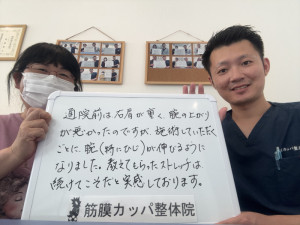 通院前は右肩が重く、腕の上がり
が悪かったのですが、施術していただく
ごとに、腕(特にひじ)が伸びるように
なりました。教えてもらったストレッチは
続けてこそだと実感しております。
筋膜カッパ整体院